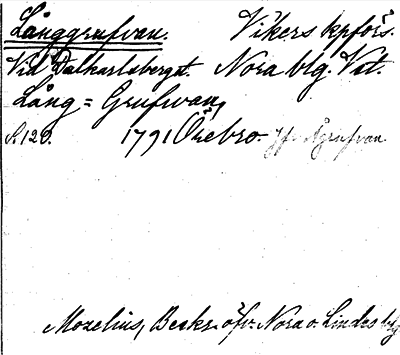 Långgrufvan. Vikers kpförs.
Vid Dalkarlsberget. Nora blg. Vst.
Lång=Grufwan,
S. 120. 1791 Örebro. Jfr Ågrufvan.
Mozelius, Beskr. öfv. Nora o. Lindes blg